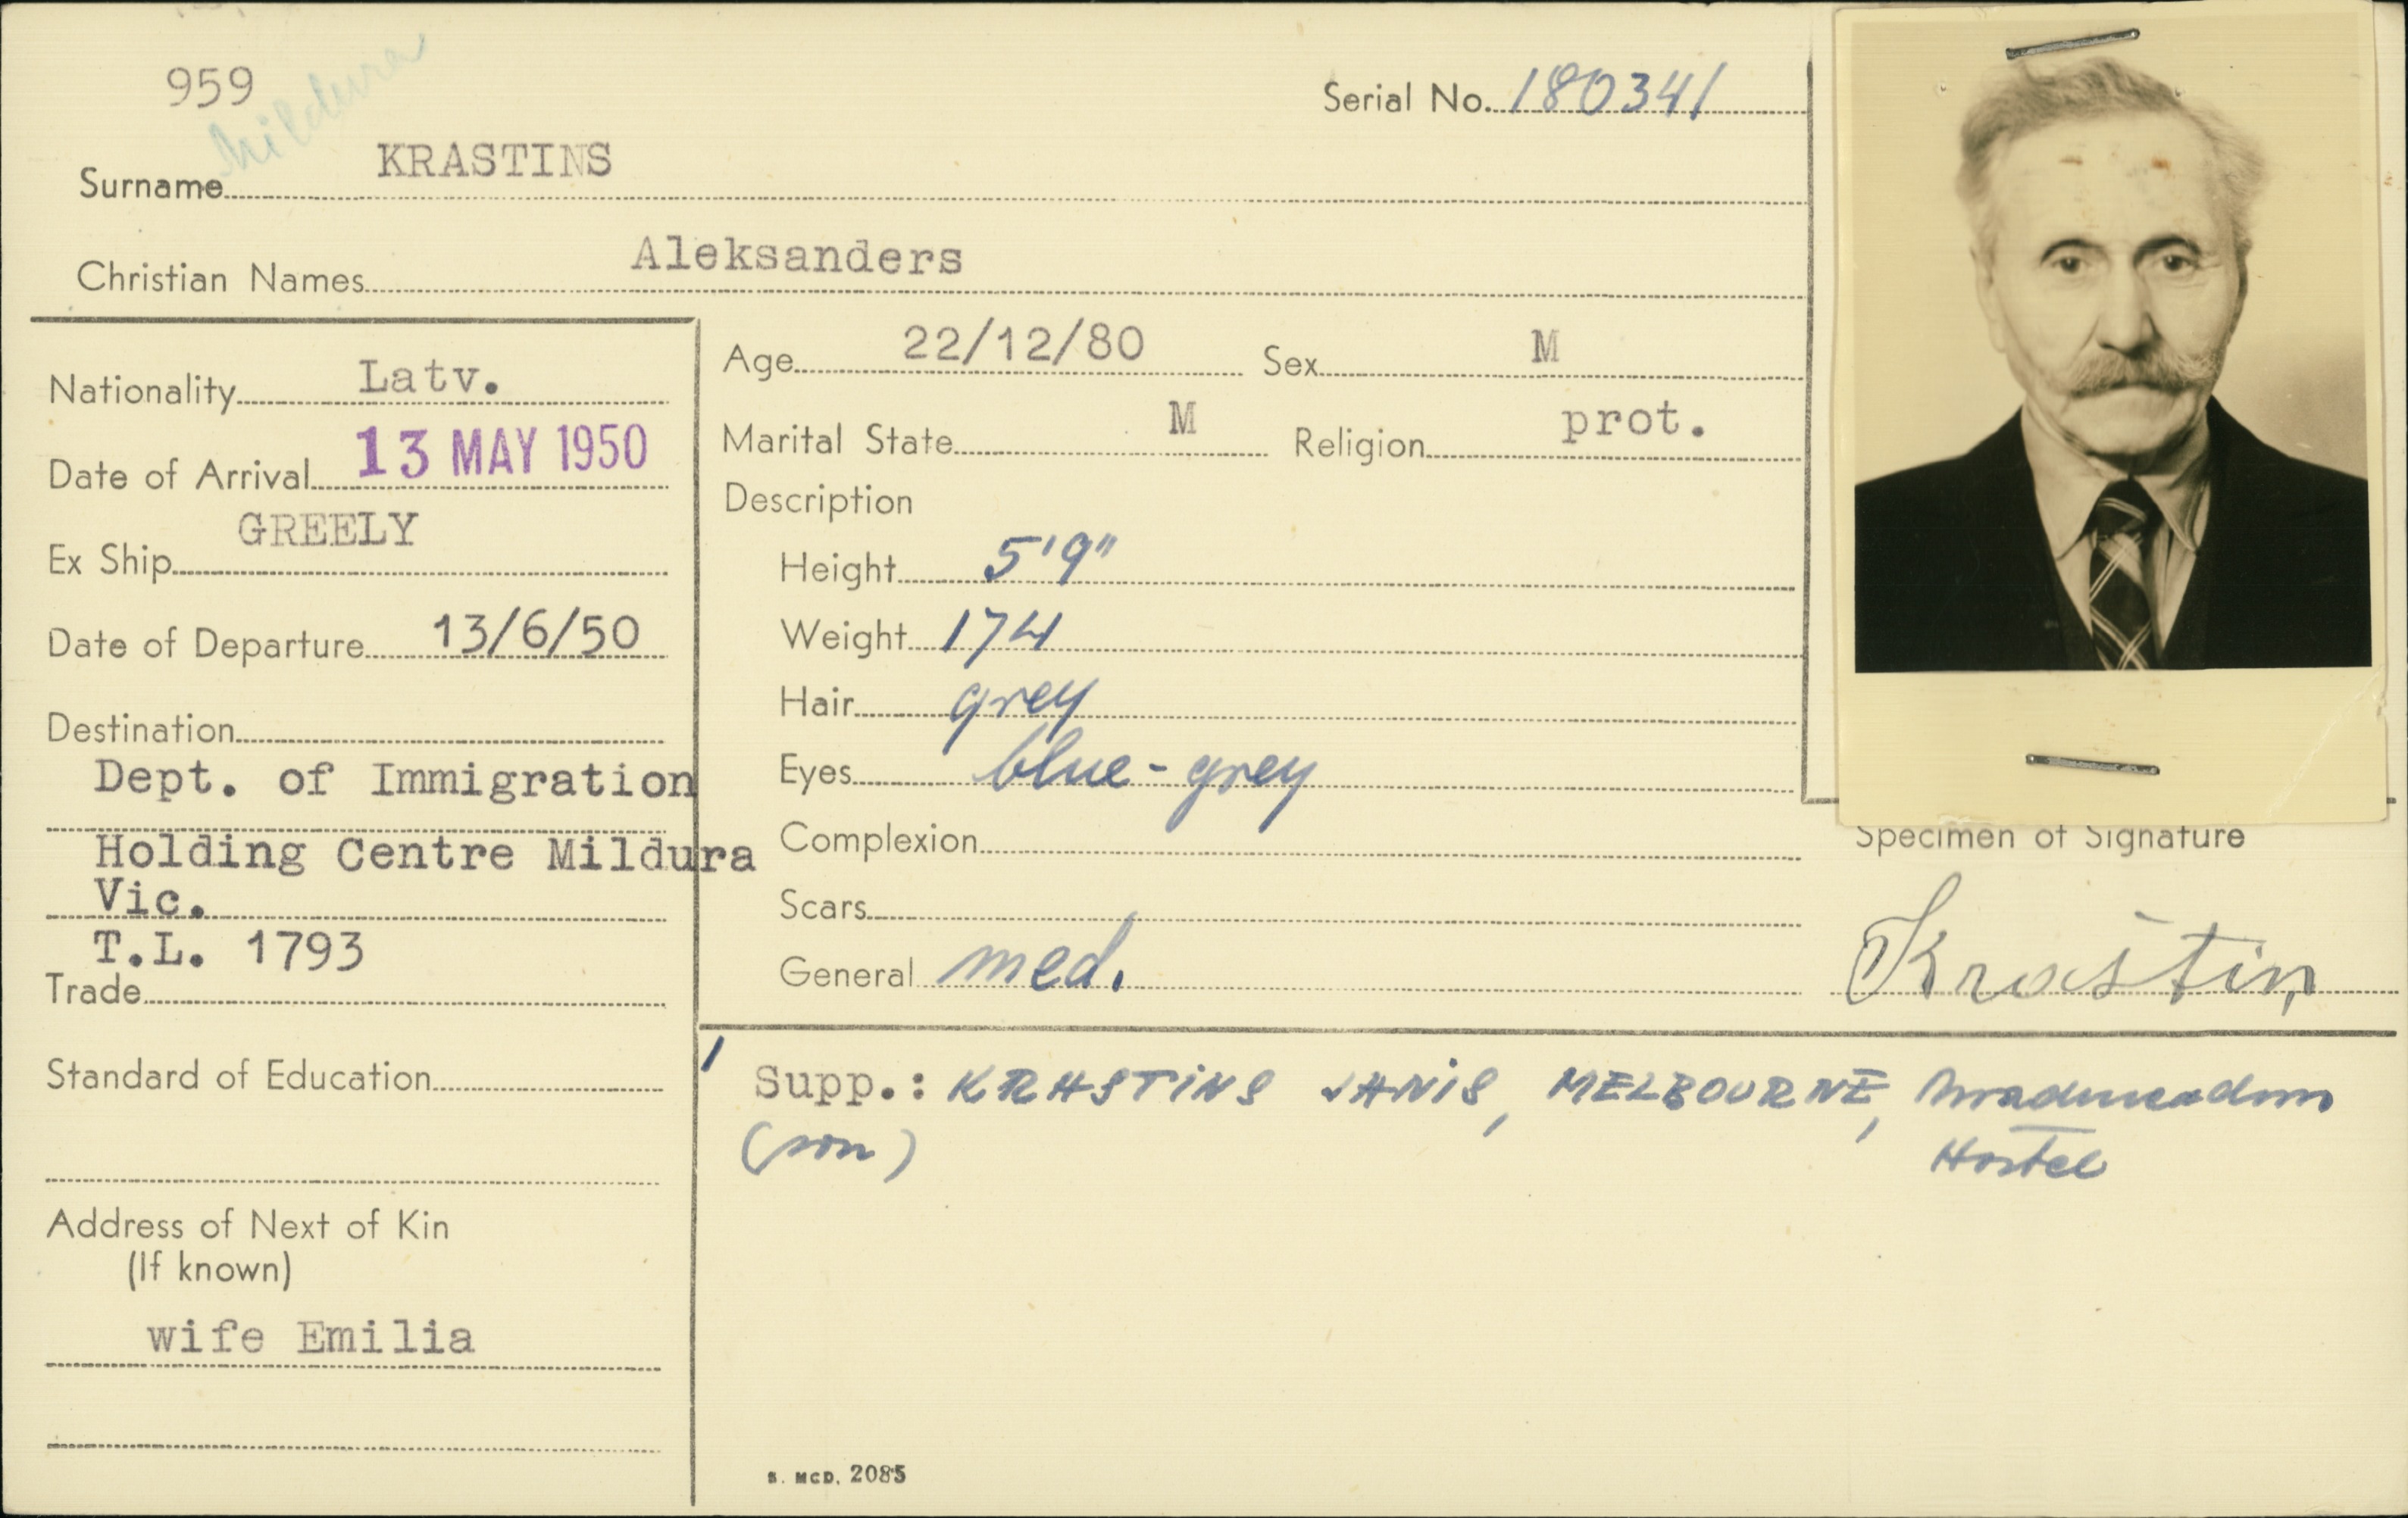 959
Mildura
Serial No. 180341
Surname KRASTINS
Christian Names Aleksanders
Nationality Latv.
Date of Arrival 13 MAY 1950
Ex Ship GREELY
Date of Departure 13/6/50
Destination
Dept. of Immigration
Holding Centre Mildura
Vic.
T.L. 1793
Trade
Standard of Education
Address of Next of Kin
(If known)
wife Emilia
Age 22/12/80 Sex M
Marital State M Religion prot.
Description
Height 5'9"
Weight 174
Hair grey
Eyes blue-grey
Complexion
Scars
General med.
Specimen of Signature
Krastiņ
1
Supp.: KRASTINS JANIS, MELBOURNE,
(son) Hostel
S. MCD. 2085